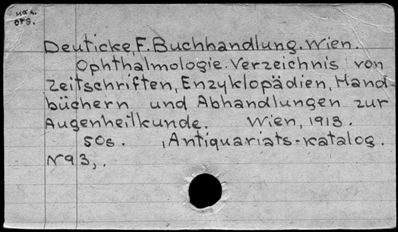 Deuticke, F. Buchhandlung. Wien.
Ophthalmologie. Verzeichnis von
Zeitschriften, Enzyklopädien, Hand-
büchern und Abhandlungen zur
Augenheilkunde. Wien, 1913.
50s. , Antiquariats-katalog.
N93,.